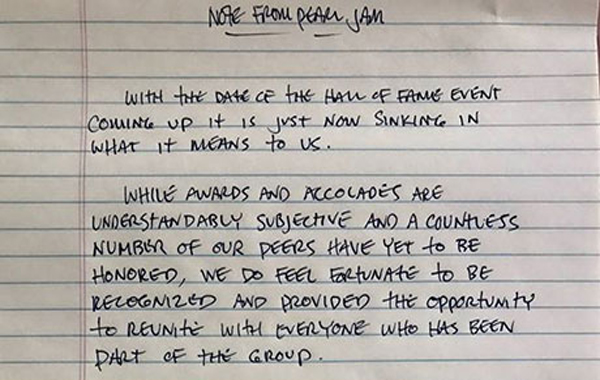 NOTE FROM PEARL JAM
WITH THE DATE OF THE HALL OF FAME EVENT
COMING UP IT IS JUST NOW SINKING IN
WHAT IT MEANS TO US.
WHILE AWARDS AND ACCOLADES ARE
UNDERSTANDABLY SUBJECTIVE AND A COUNTLESS
NUMBER OF OUR PEERS HAVE YET TO BE
HONORED, WE DO FEEL FORTUNATE TO BE
RECOGNIZED AND PROVIDED THE OPPORTUNITY
TO REUNITE WITH EVERYONE WHO HAS BEEN
PART OF THE GROUP.